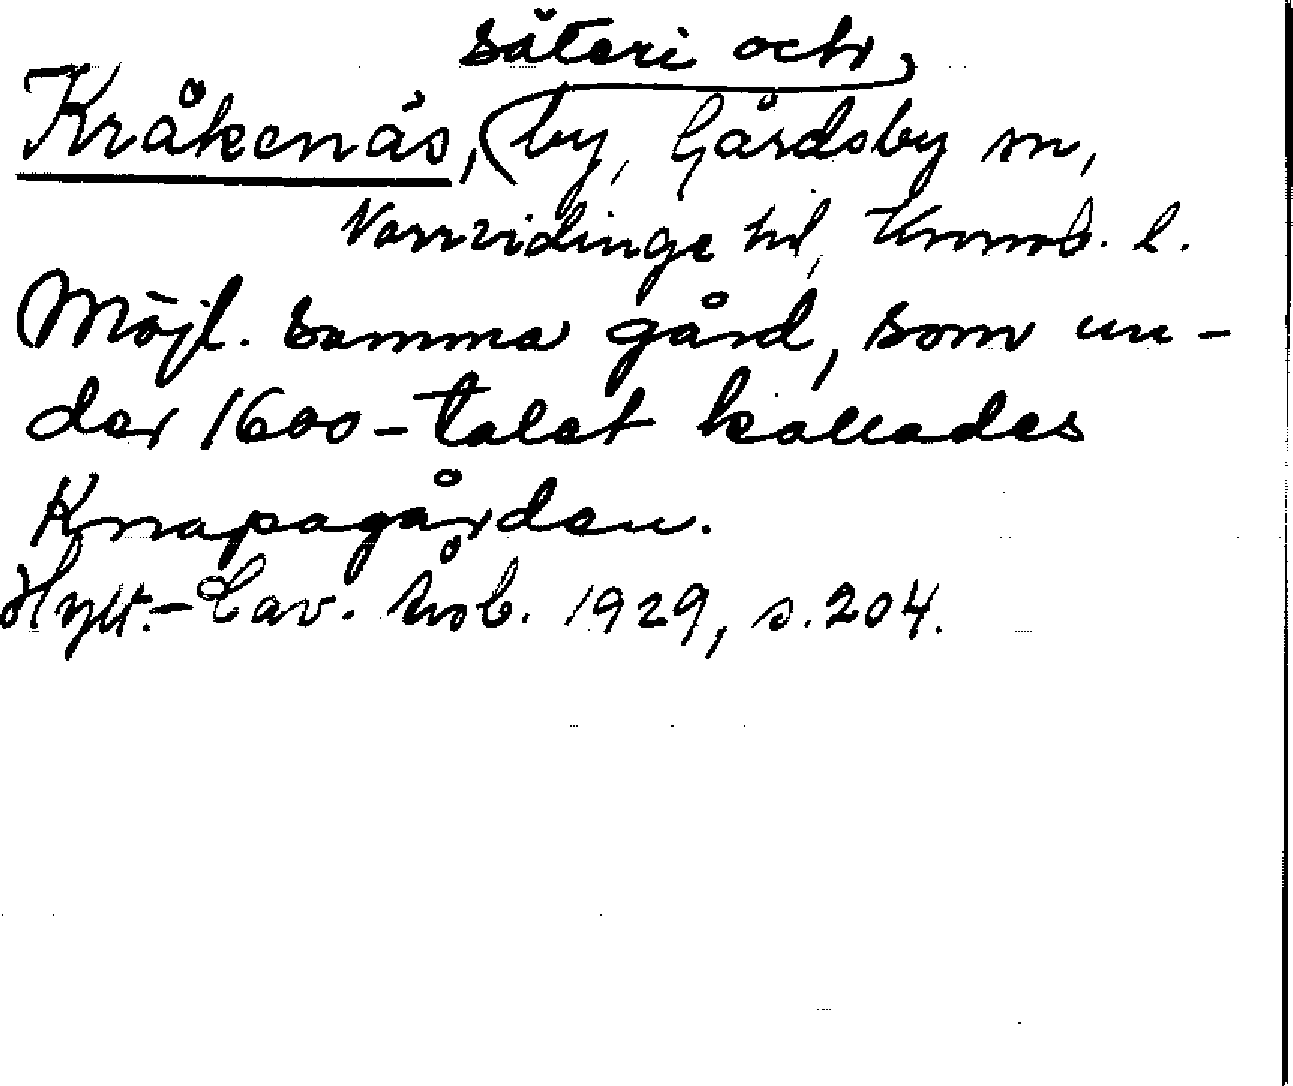 säteri och
Kråkenäs, by, Gårdsby sn,
Norrvidinge hd, Kronob. l.
Möjl. samma gård, som un-
der 1600-talet kallades
Knapagården.
Hylt.-Cav. håb. 1929, s. 204.